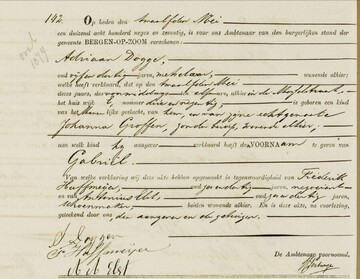 142. Op heden den twaalfden Mei
een duizend acht honderd negen en zeventig, is voor ons Ambtenaar van den burgerlijken stand der
gemeente BERGEN-OP-ZOOM verschenen:
Adriaan Dogge,
oud vijf en dertig jaren, metselaar, wonende alhier;
welke heeft verklaard, dat op den twaalfden Mei
dezes jaars, des voormiddags te elf ure, alhier in de
het huis wijk nummer drie en veertig is geboren een kind
van het Mannelijke geslacht, van hem, en van zijne echtgenoote
Johanna Groffen, zonder beroep, wonende alhier,
aan welk kind hij aangever verklaard heeft de VOORNAAM te geven van
Gabriël.
Van welke verklaring wij deze akte hebben opgemaakt in tegenwoordigheid van Frederik
Hoffmeijer, oud jaren, negociant
en van Antonius Elst, oud jaren,
beiden wonende alhier. En is deze akte, na voorlezing,
geteekend door ons, den aangever en de getuigen.
De Ambtenaar voornoemd,
A Doggen
F Hoffmeijer
A Elst
overl.
1879